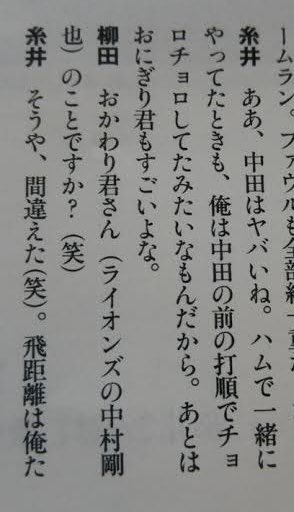 ームラン。ファウルも全部
糸井　ああ、中田はヤバいね。ハムで一緒に
やってたときも、俺は中田の前の打順でチョ
ロチョロしてたみたいなもんだから。あとは
おにぎり君もすごいよな。
柳田　おかわり君さん（ライオンズの中村剛
也）のことですか？（笑）
糸井　そうや、間違えた（笑）。飛距離は俺た